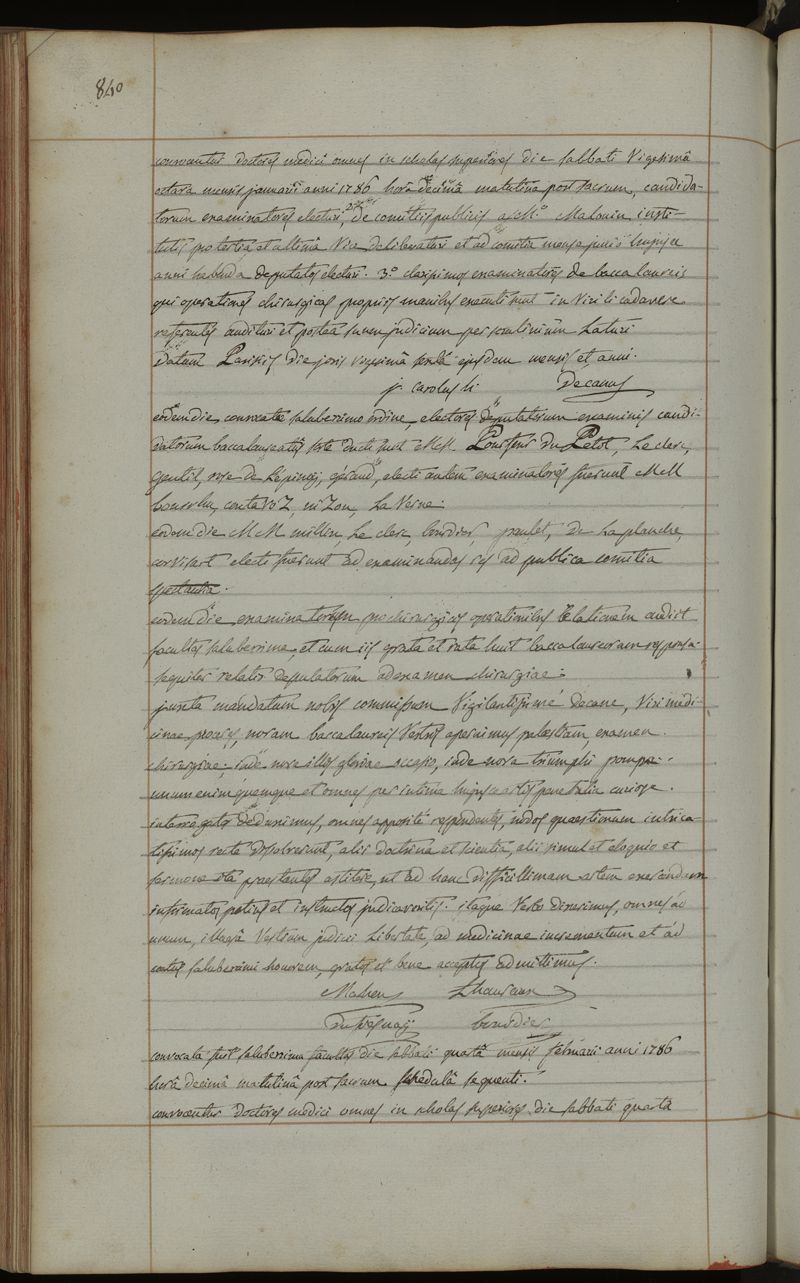 840
convocentur doctores medici omnes in scholas superiores die sabbati Vigesimâ
octava mensis januarii anni 1786 horâ decimâ matutinâ post sacrum, candida-
torum examinatores electuri, 2° de comitiis publicis a M.° Malouin insti-
tutis pro tertiâ et ultimâ Vice deliberaturi et ad comitia mense junio hujusce
anni habenda deputatos electuri. 3.° clarissimos examinatores de baccalaureis
qui operationes chirurgicas propriis manibus executi sunt in Virili cadavere
referentes audituri et posteà suum judicium per scrutinium Laturi
datum Parisiis die jovis Vigesimâ sextâ ejusdem mensis et anni.
j. Decanus
eodem die convocato saluberrimo ordine, electores deputatorum examinis candi-
datorum baccalaureatûs sorte ducti sunt MM. Du Petit, Le clerc,
gentil, rose de Lépinoy, electi autem examinatores fuerunt MM
bourru, nizon, La Verne.
eodem die MM millin, Le clerc, bourdier, paulet, De La planche,
corvisart electi fuerunt ad examinandas res ad publica comitia
spectantia.
eodem die examinatorum pro chirurgicis operationibus Relationem audiit
facultas saluberrima, et cum iis grata et rata fuit baccalaureorum responsa
sequitur relatio deputatorum ad examen chirurgiae.
juxta mandatum nobis commissum Vigilantissime Decane, Viri medi-
cinae proceres, novam baccalaureis Vestris aperuimus palestram, examen
chirurgiae; inde nova illis gloriae accessio, inde nova triumphi pompa.
unum enim quemque et omnes per intima hujus artis penetralia curiose
interrogatos deduximus, omnes apposite respondentes, nodos quaestionum intrica-
tissimos recte dissolverunt, alii doctrina et scientia, alii simul et eloquio et
sermone ita praestantes astitere, ut ad hanc difficillimam artem exercendam
informatos potius et instructos judicaveritis. itaque Verbo diximus, omnes ad
unum, illaesâ Vestrûm judicii Libertate, ad medicinae incrementum et ad
coetus saluberrimi honorem, gratos et bene acceptos admittimus.
bourdier
convocata fuit saluberrima facultas die sabbati quartâ mensis februarii anni 1786
horâ decimâ matutinâ post sacrum schedulâ sequenti.
convocentur doctores medici omnes in scholas superiores die sabbati quarta